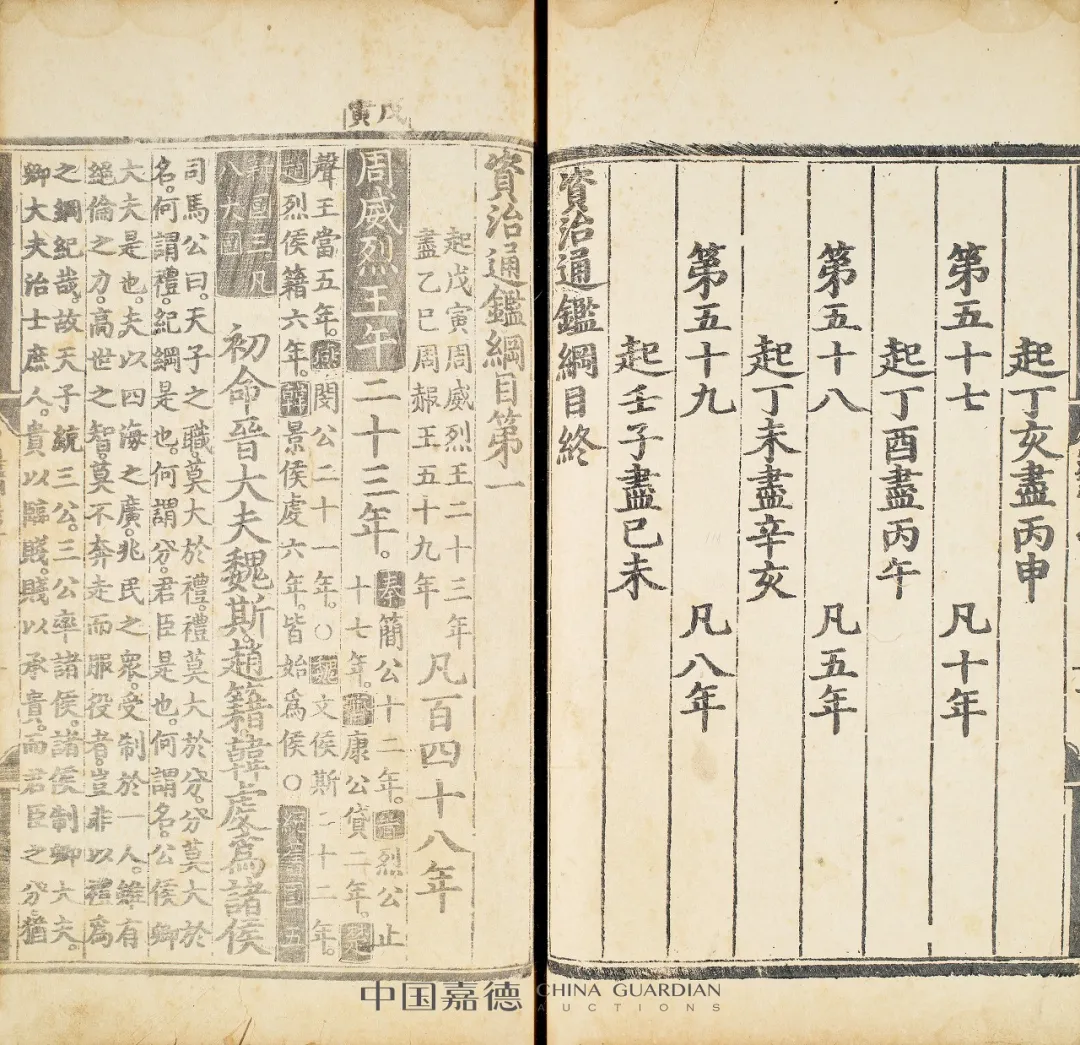 起丁亥盡丙申
第五十七 凡十年
起丁酉盡丙午
第五十八 凡五年
起丁未盡辛亥
第五十九 凡八年
起壬子盡己未
資治通鑑綱目終
資治通鑑綱目第一
起戊寅周威烈王二十三年
盡乙巳周赧王五十九年
凡百四十八年
戊寅
周威烈王午二十三年。
秦簡公十二年。晉烈公止
十七年。齊康公貸二年。楚
聲王當五年。燕閔公二十一年。○魏文侯斯二十二年。
趙烈侯籍六年。韓景侯虔六年。皆始爲侯○舊國五
新國三凡
八大國
初命晉大夫魏斯趙籍韓虔爲諸侯
司馬公曰。天子之職。莫大於禮。禮莫大於分。分莫大於
名。何謂禮。紀綱是也。何謂分。君臣是也。何謂名。公侯卿
大夫是也。夫以四海之廣。兆民之衆。受制於一人。雖有
絕倫之力。高世之智。莫不奔走而服役者。豈非以禮爲
之綱紀哉。故天子統三公。三公率諸侯。諸侯制卿大夫。
卿大夫治士庶人。貴以臨賤。賤以承貴。而君臣之分。猶
中国嘉德 CHINA GUARDIAN
AUCTIONS